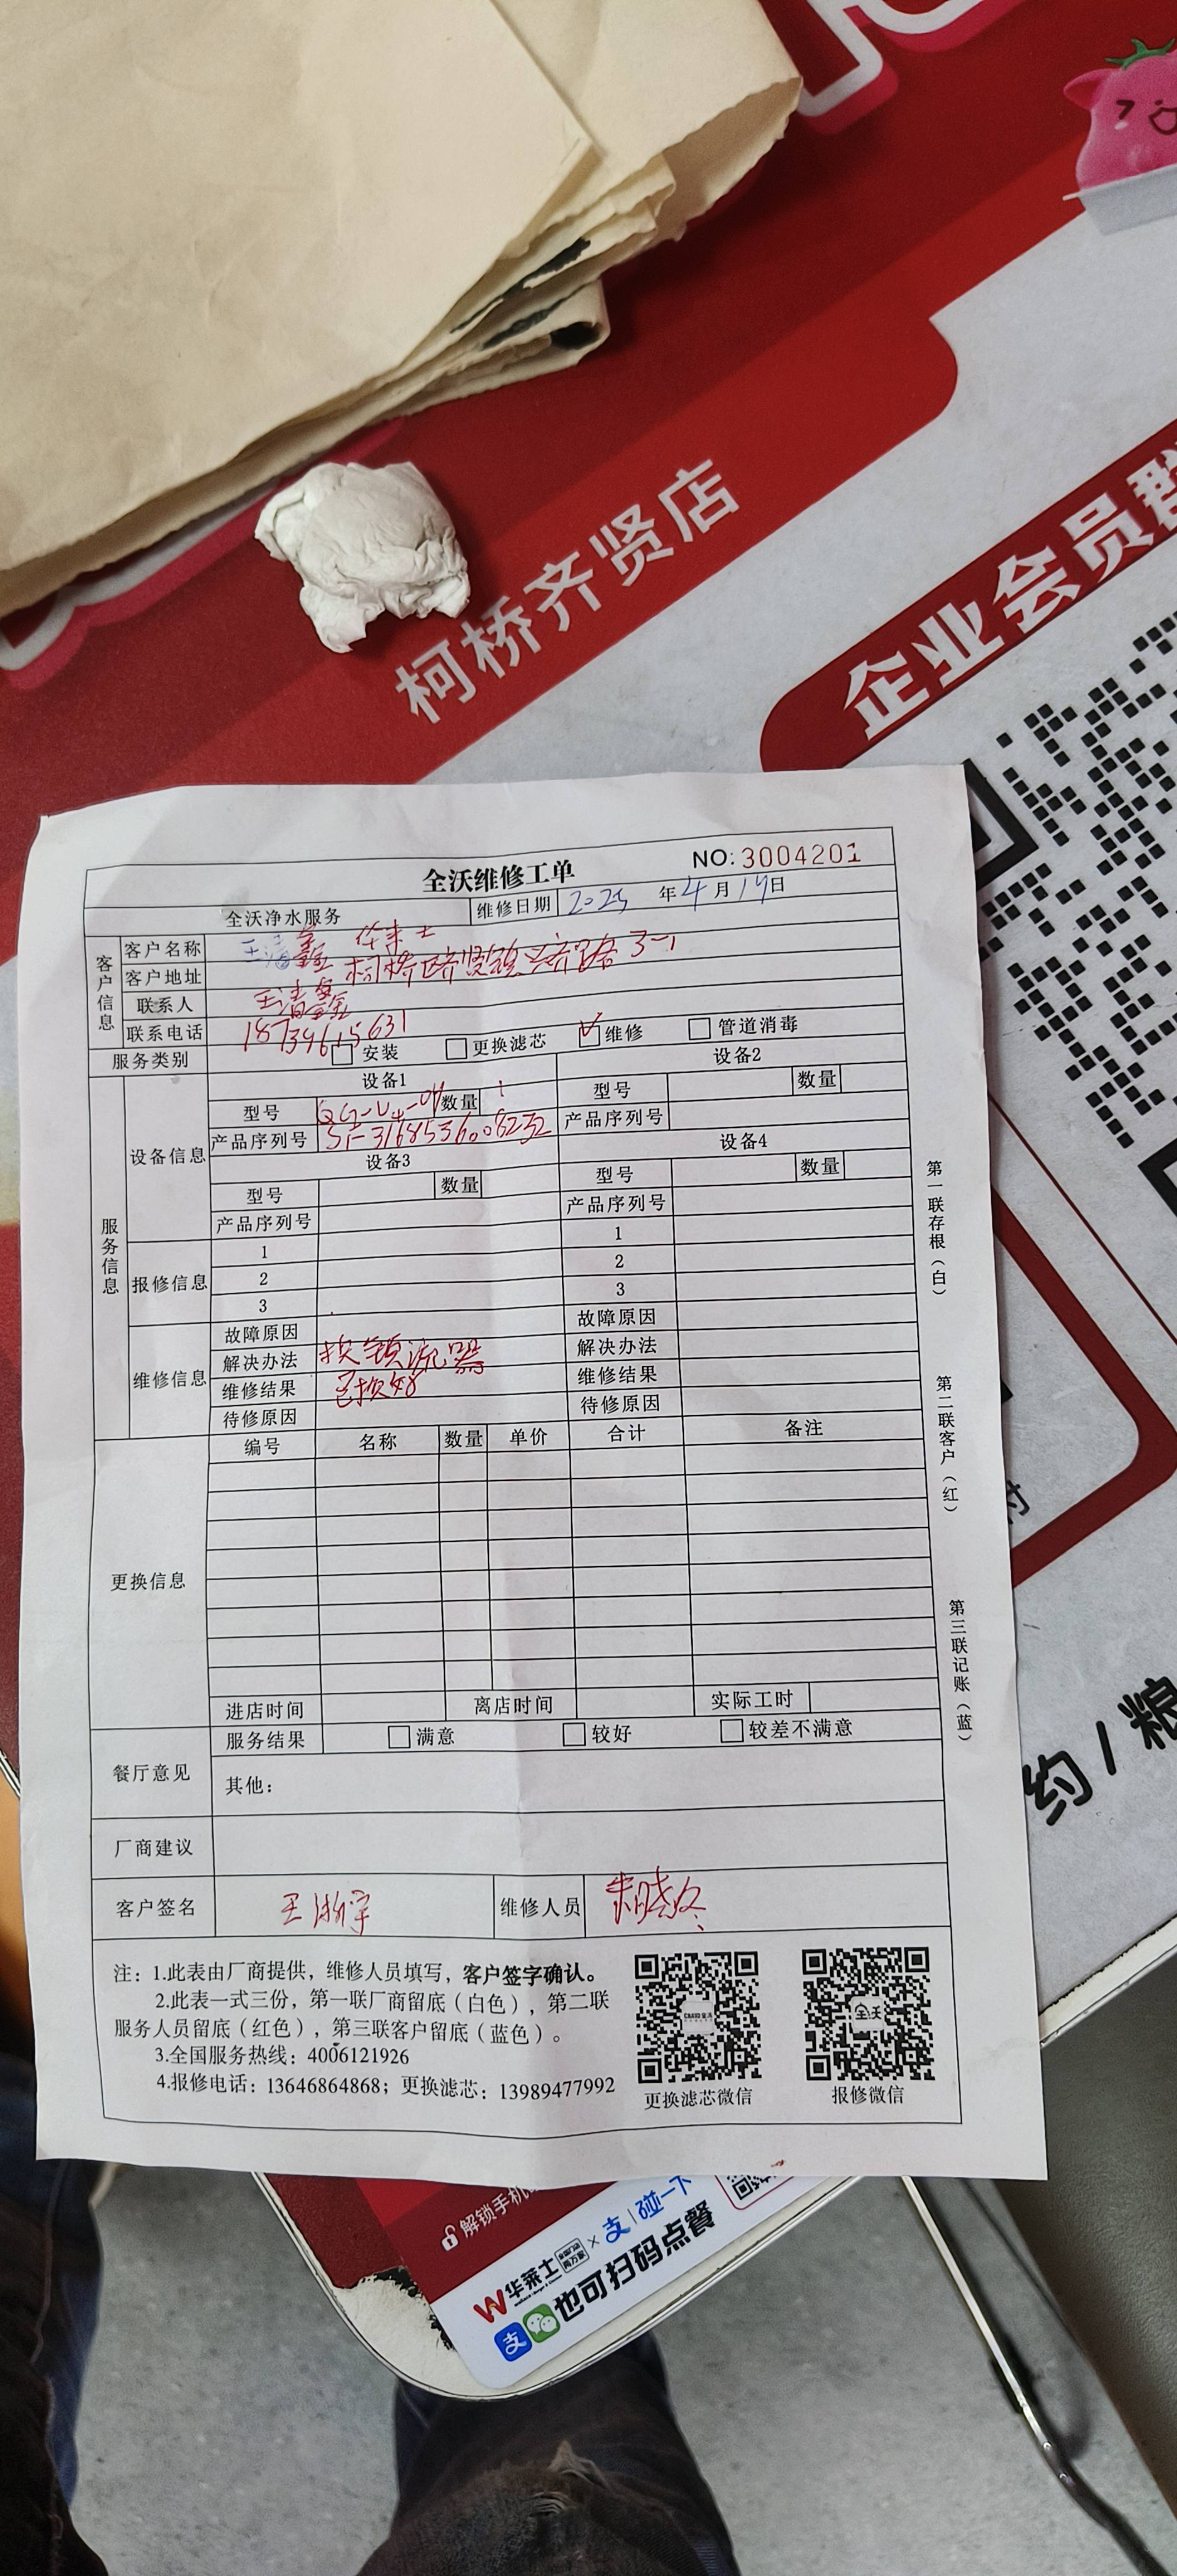 柯桥齐贤店
企业会员群
全沃维修工单
NO: 3004201
全沃净水服务 维修日期 2025 年 4 月 19 日
客户信息
客户名称 王清鑫 华莱士
客户地址 柯桥区齐贤镇兴齐路3-1
联系人 王清鑫
联系电话 18739615631
服务类别 安装 更换滤芯 维修 管道消毒
服务信息
设备信息
设备1 设备2
型号 QG-U4-04 数量 1 型号 数量
产品序列号 产品序列号
设备3 设备4
型号 数量 型号 数量
产品序列号 产品序列号
报修信息
1 1
2 2
3 3
维修信息
故障原因 故障原因
解决办法 换镇流器 解决办法
维修结果 已换好 维修结果
待修原因 待修原因
更换信息
编号 名称 数量 单价 合计 备注
进店时间 离店时间 实际工时
餐厅意见
服务结果 满意 较好 较差不满意
其他：
厂商建议
客户签名 王浙宇 维修人员 朱晓冬
注：1.此表由厂商提供，维修人员填写，客户签字确认。
2.此表一式三份，第一联厂商留底（白色），第二联
服务人员留底（红色），第三联客户留底（蓝色）。
3.全国服务热线：4006121926
4.报修电话：13646864868；更换滤芯：13989477992
全沃
更换滤芯微信 报修微信
第一联存根（白）
第二联客户（红）
第三联记账（蓝）
约/粮
解锁手机
华莱士 × 支 | 碰一下
支 也可扫码点餐